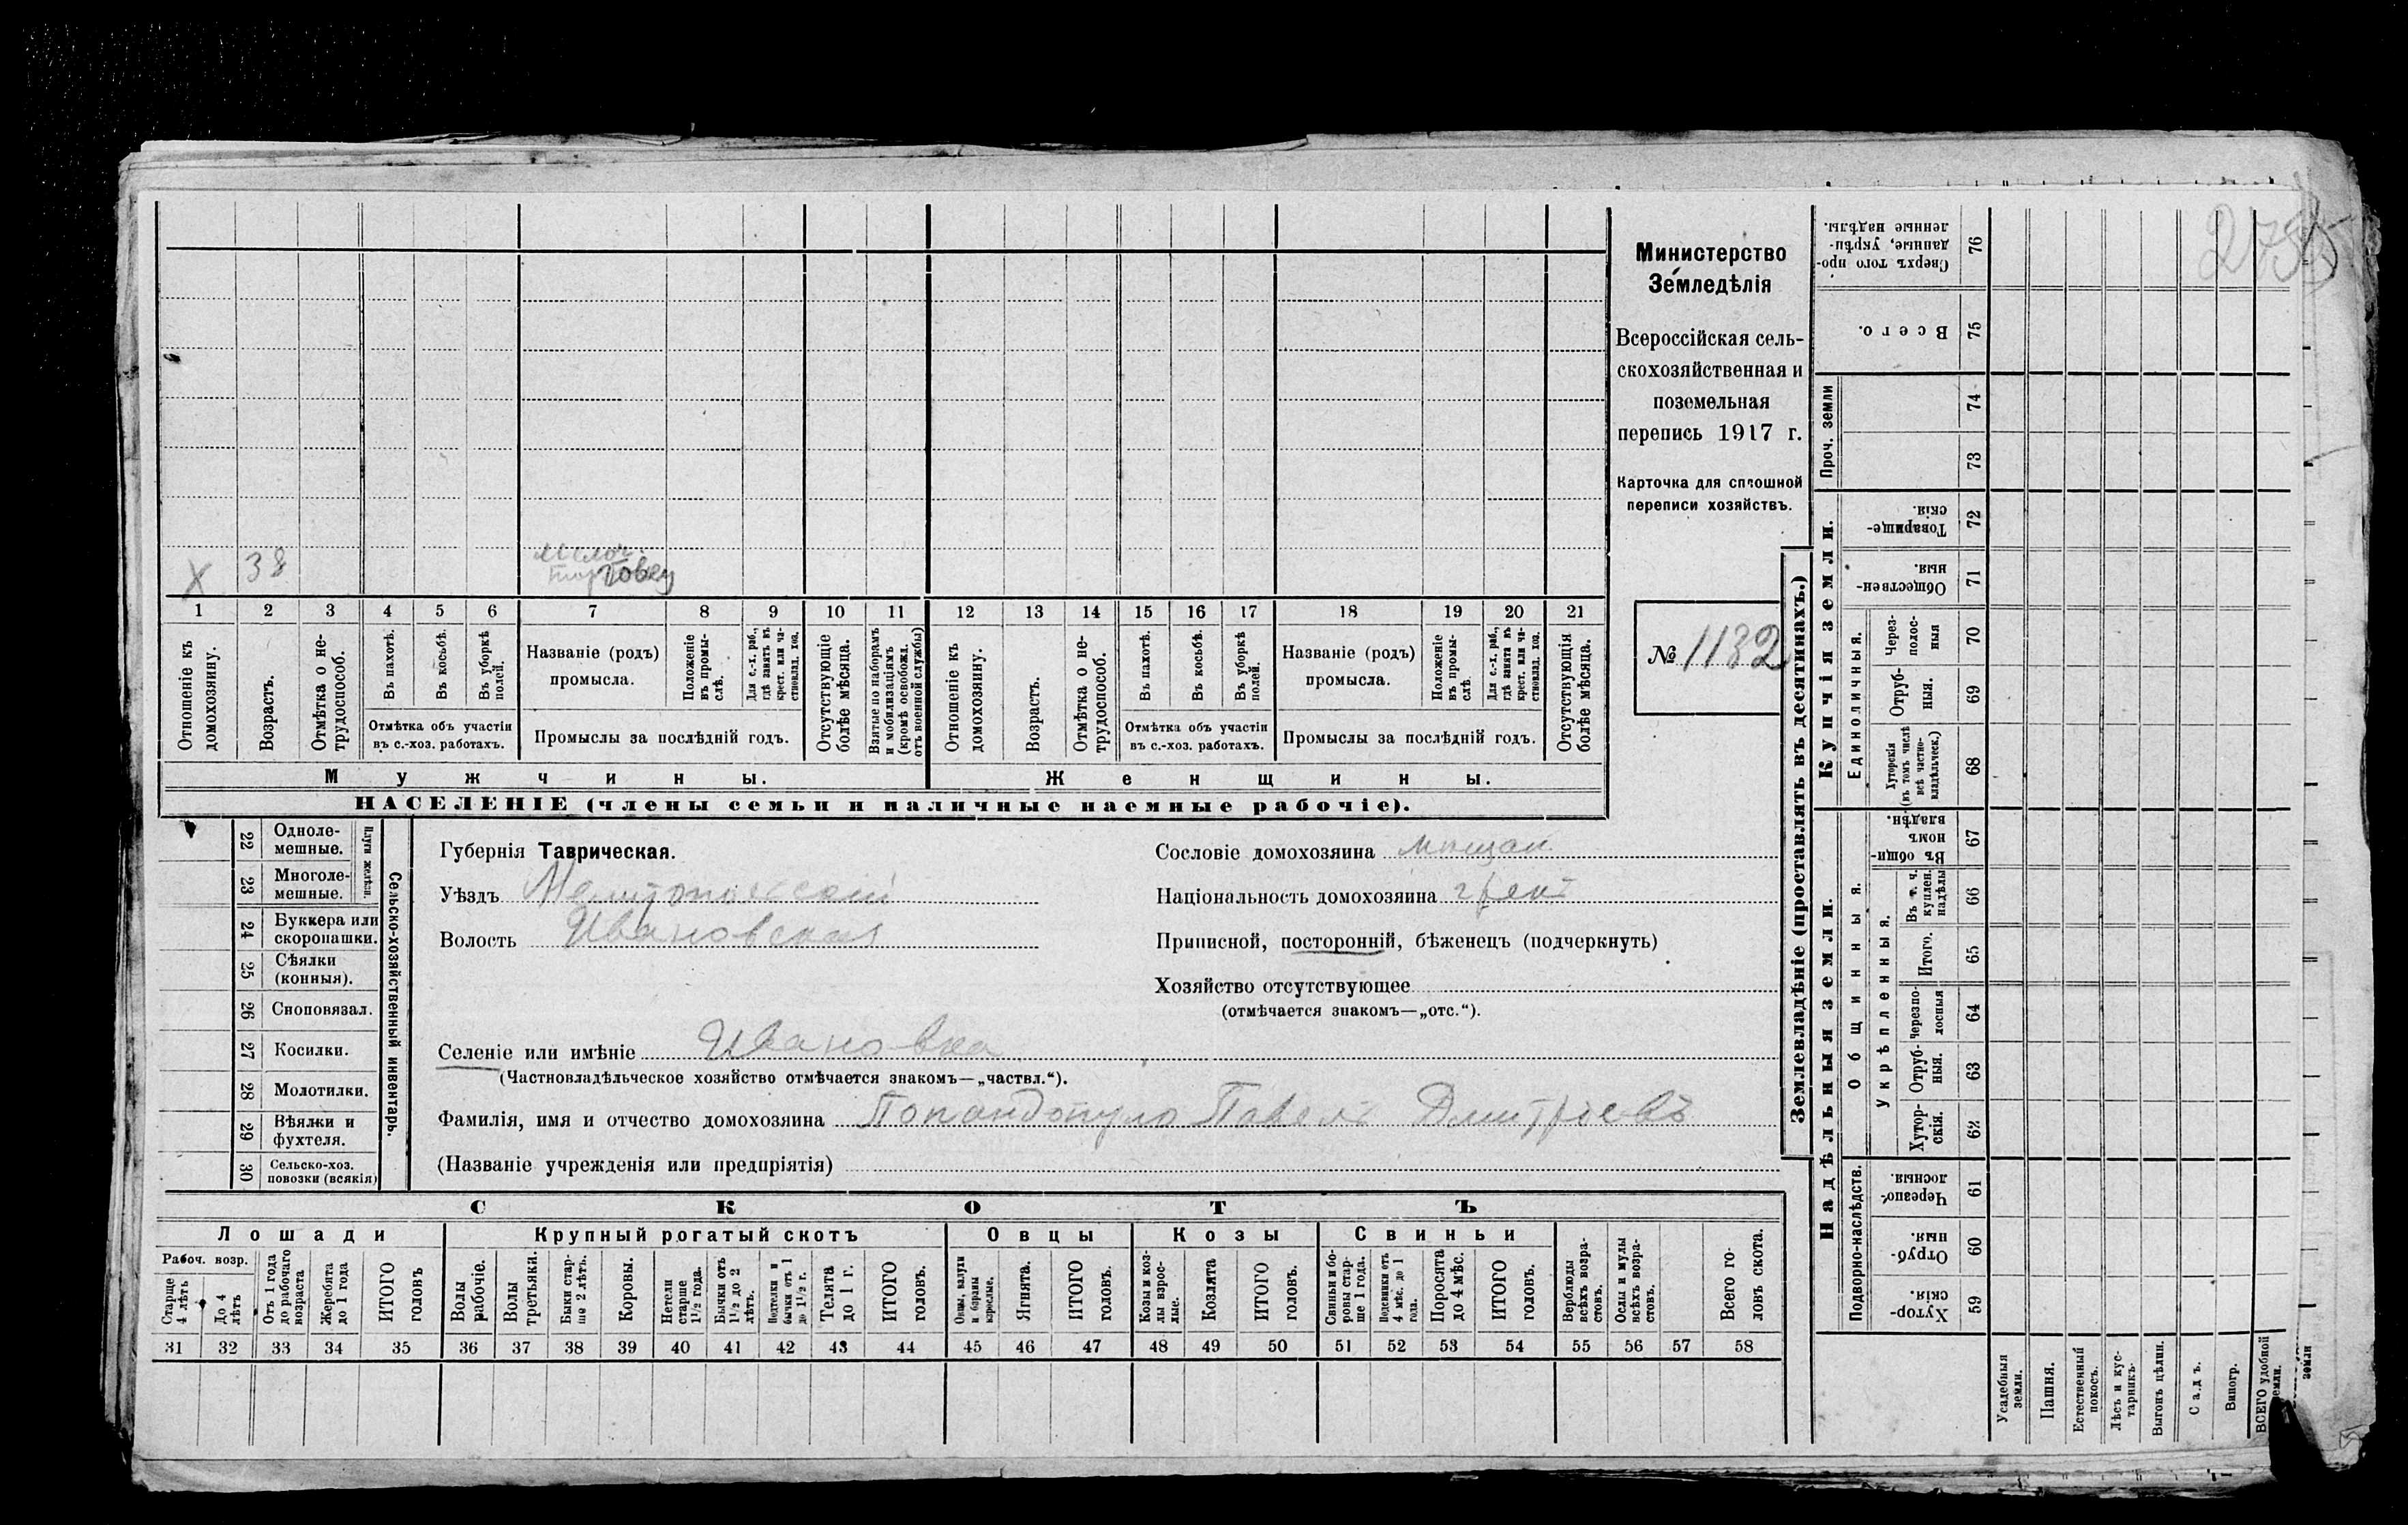 275
Министерство
Земледѣлія
Всероссійская сель-
скохозяйственная и
поземельная
перепись 1917 г.
Карточка для сплошной
переписи хозяйствъ.
№ 1132
Х 38 мелоч.
торговец
1 2 3 4 5 6 7 8 9 10 11 12 13 14 15 16 17 18 19 20 21
Отношеніе къ
домохозяину.
Возрастъ.
Отмѣтка о не-
трудоспособ.
Въ пахотѣ.
Въ косьбѣ.
Въ уборкѣ
полей.
Отмѣтка объ участіи
въ с.-хоз. работахъ.
Названіе (родъ)
промысла.
Положеніе
въ промы-
слѣ.
Для с.-х. раб.,
гдѣ занятъ въ
крест. или ча-
стновлад. хоз.
Промыслы за послѣдній годъ.
Отсутствующіе
болѣе мѣсяца.
Взятые по наборамъ
и мобилизаціямъ
(кромѣ освобожд.
отъ военной службы)
Отношеніе къ
домохозяину.
Возрастъ.
Отмѣтка о не-
трудоспособ.
Въ пахотѣ.
Въ косьбѣ.
Въ уборкѣ
полей.
Отмѣтка объ участіи
въ с.-хоз. работахъ.
Названіе (родъ)
промысла.
Положеніе
въ промы-
слѣ.
Для с.-х. раб.,
гдѣ занята въ
крест. или ча-
стновлад. хоз.
Промыслы за послѣдній годъ.
Отсутствующія
болѣе мѣсяца.
Мужчины.
Женщины.
НАСЕЛЕНІЕ (члены семьи и наличные наемные рабочіе).
22 Одноле-
мешные.
23 Многоле-
мешные.
Плуги желѣзн.
24 Буккера или
скоропашки.
25 Сѣялки
(конныя).
26 Сноповязал.
27 Косилки.
28 Молотилки.
29 Вѣялки и
фухтеля.
30 Сельско-хоз.
повозки (всякія)
Сельско-хозяйственный инвентарь.
Губернія Таврическая.
Уѣздъ Мелитопольскій
Волость Ивановская
Сословіе домохозяина мѣщан
Національность домохозяина грекъ
Приписной, посторонній, бѣженецъ (подчеркнуть)
Хозяйство отсутствующее
(отмѣчается знакомъ—„отс.“).
Селеніе или имѣніе Ивановка
(Частновладѣльческое хозяйство отмѣчается знакомъ—„частвл.“).
Фамилія, имя и отчество домохозяина Попандопуло Павелъ Дмитріевъ
(Названіе учрежденія или предпріятія)
СКОТЪ
Лошади
Крупный рогатый скотъ
Овцы
Козы
Свиньи
Рабоч. возр.
Старше
4 лѣтъ
До 4
лѣтъ
Отъ 1 года
до рабочаго
возраста
Жеребята
до 1 года
ИТОГО
головъ
Волы
рабочіе.
Волы
третьяки.
Быки стар-
ше 2 лѣтъ.
Коровы.
Нетели
старше
1½ года.
Бычки отъ
1½ до 2
лѣтъ.
Подтелки и
бычки отъ 1
до 1½ г.
Телята
до 1 г.
ИТОГО
головъ.
Овцы, валухи
и бараны
взрослые.
Ягнята.
ИТОГО
головъ.
Козы и коз-
лы взрос-
лые.
Козлята
ИТОГО
головъ.
Свиньи и бо-
ровы стар-
ше 1 года.
Подсвинки отъ
4 мѣс. до 1
года.
Поросята
до 4 мѣс.
ИТОГО
головъ.
Верблюды
всѣхъ возра-
стовъ.
Ослы и мулы
всѣхъ возра-
стовъ.
Всего го-
ловъ скота.
31 32 33 34 35 36 37 38 39 40 41 42 43 44 45 46 47 48 49 50 51 52 53 54 55 56 57 58
Землевладѣніе (проставлять въ десятинахъ.)
Купчія земли.
Надѣльныя земли.
Проч. земли
Единоличныя.
Общинныя.
Укрѣпленныя.
Подворно-наслѣдств.
Сверхъ того про-
данные, укрѣп-
ленные надѣлы. 76
Всего. 75
74
73
Товарище-
скія. 72
Обществен-
ныя. 71
Через-
полос-
ныя 70
Отруб-
ныя. 69
Хуторскія
(въ томъ числѣ
всѣ частно-
владѣльческ.) 68
Въ общи-
номъ
владѣн. 67
Въ т. ч.
куплен.
надѣлы 66
Итого. 65
Черезпо-
лосныя 64
Отруб-
ныя. 63
Хутор-
скія. 62
Черезпо-
лосныя. 61
Отруб-
ныя. 60
Хутор-
скія. 59
Усадебныя
земли.
Пашня.
Естественный
покосъ.
Лѣсъ и кус-
тарникъ.
Выгонъ цѣлин.
Садъ.
Виногр.
ВСЕГО удобной
земли.
земли